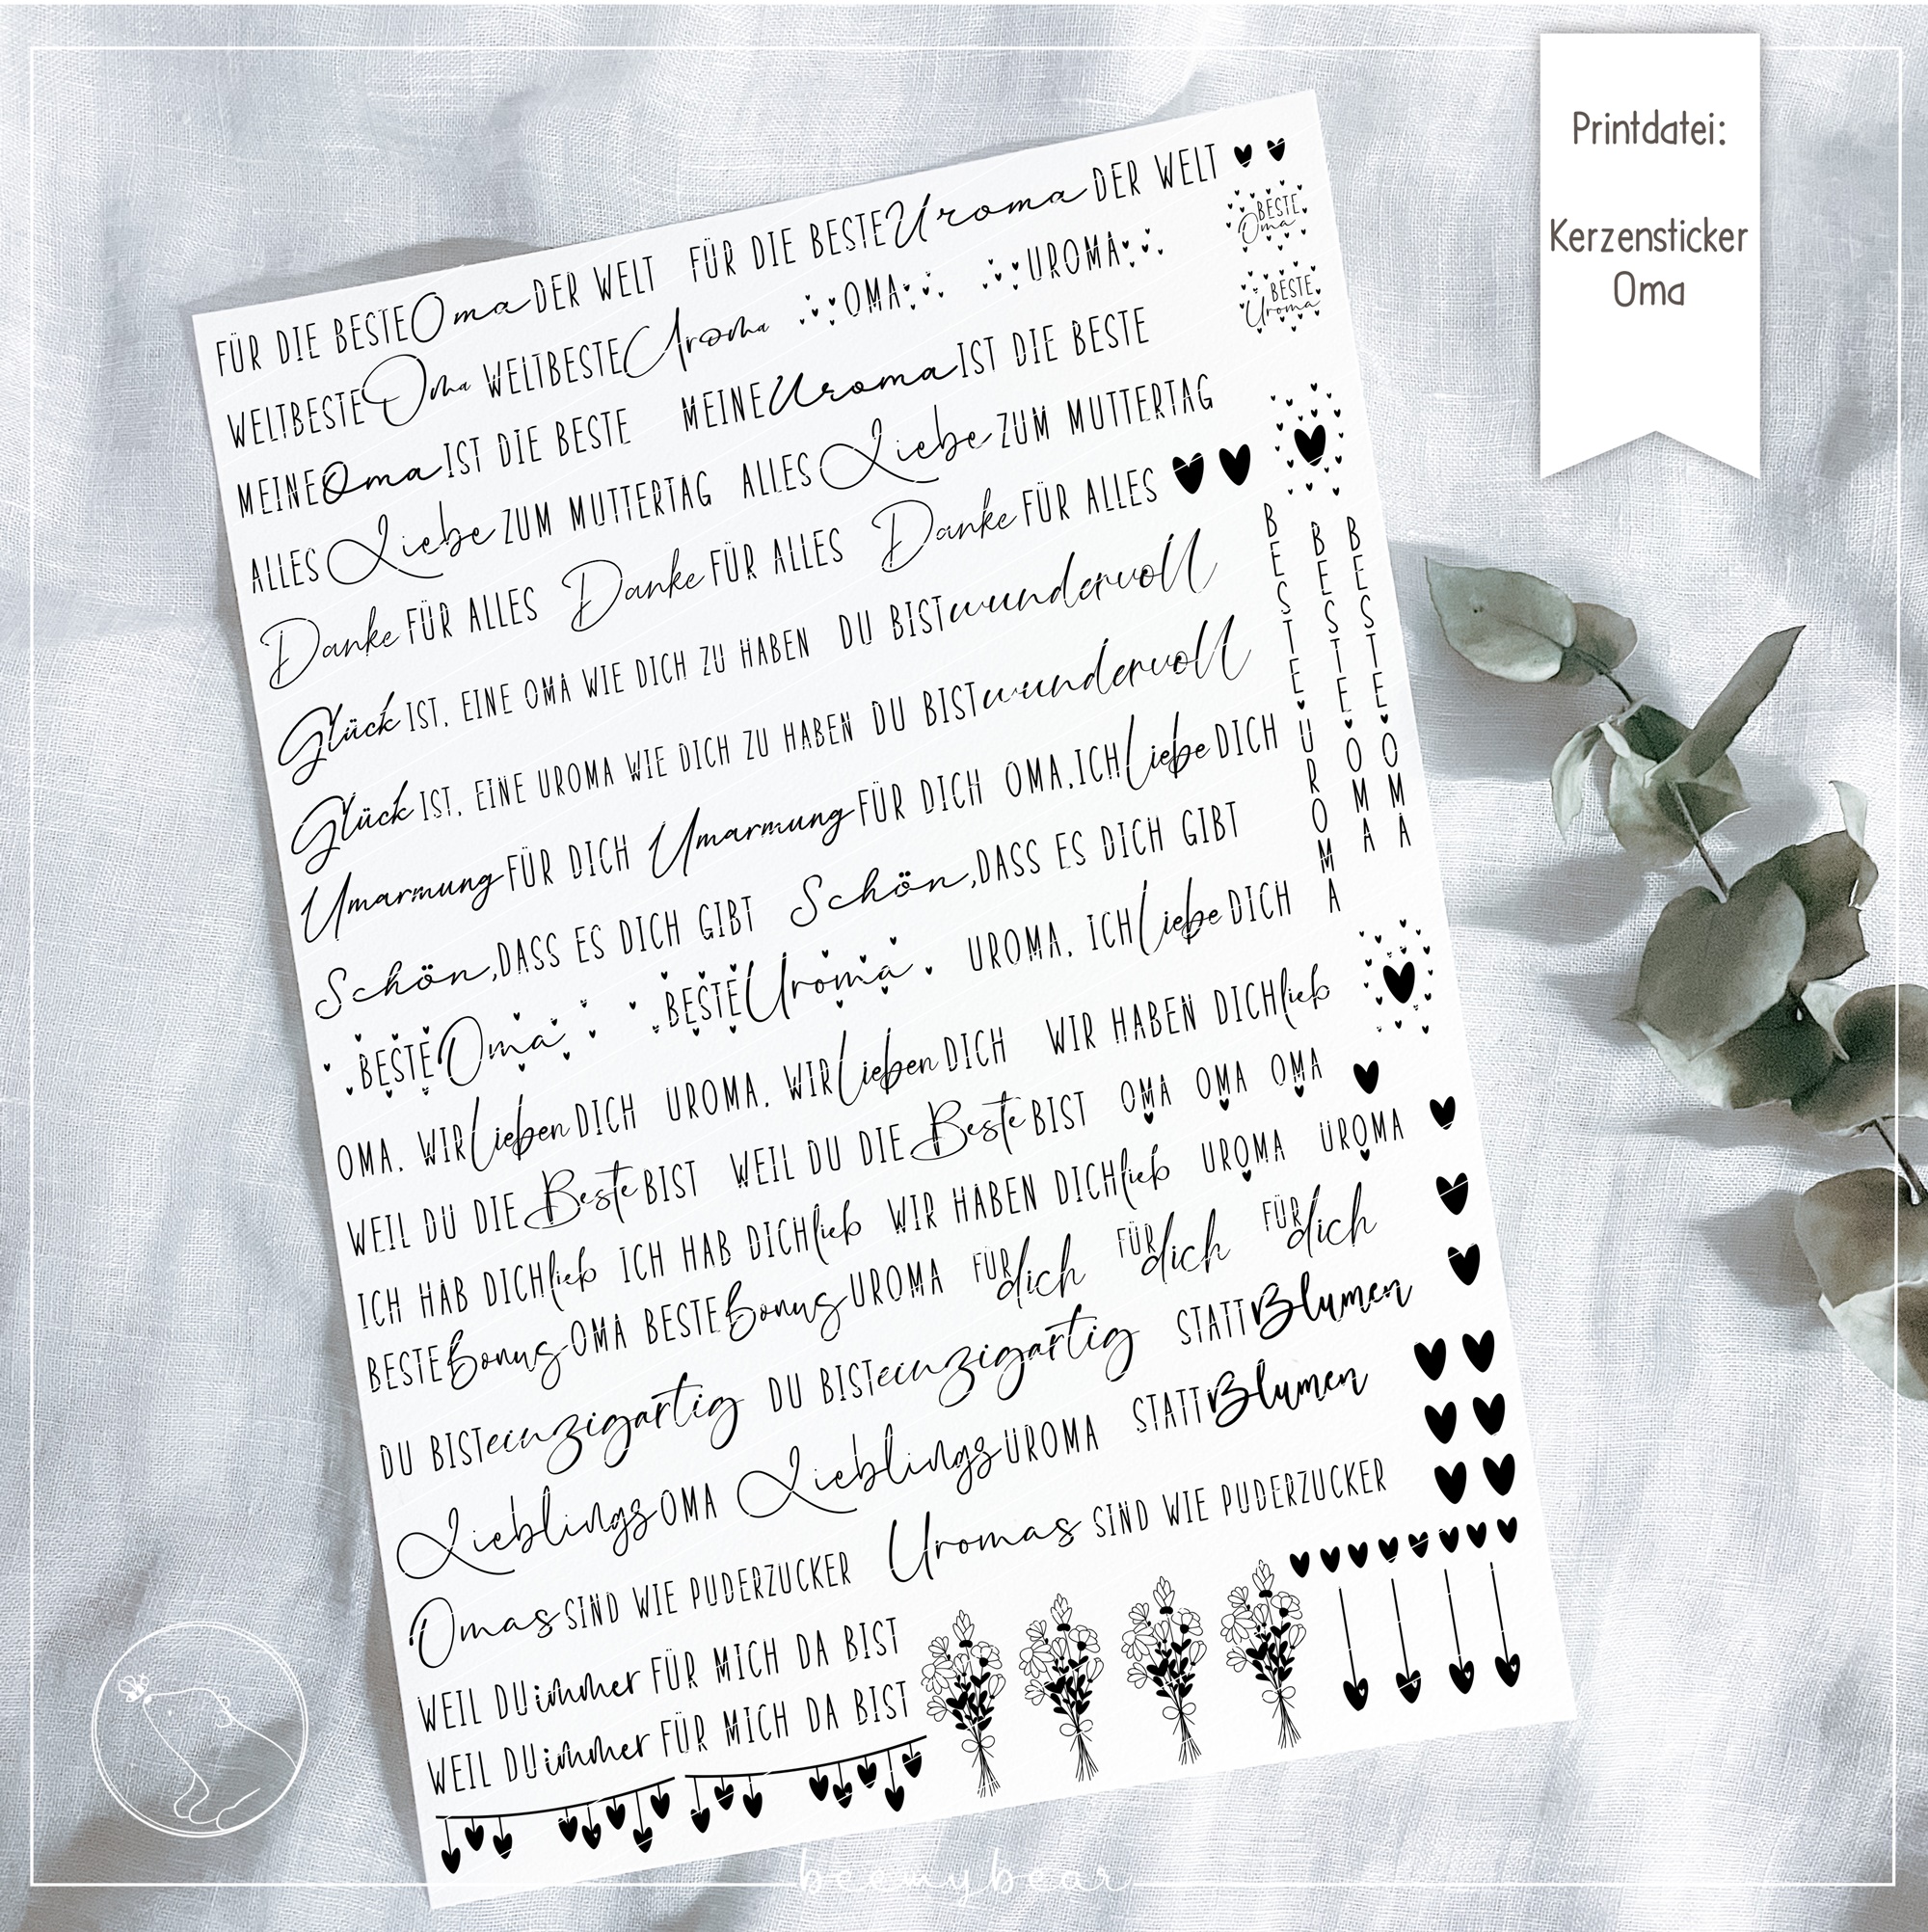 Printdatei:
Kerzensticker
Oma
FÜR DIE BESTE Oma DER WELT FÜR DIE BESTE Uroma DER WELT
BESTE
Oma
WELTBESTE Oma WELTBESTE Uroma OMA UROMA
BESTE
Uroma
MEINE Oma IST DIE BESTE MEINE Uroma IST DIE BESTE
ALLES Liebe ZUM MUTTERTAG ALLES Liebe ZUM MUTTERTAG
Danke FÜR ALLES Danke FÜR ALLES Danke FÜR ALLES
Glück IST, EINE OMA WIE DICH ZU HABEN DU BIST wundervoll
Glück IST, EINE UROMA WIE DICH ZU HABEN DU BIST wundervoll
Umarmung FÜR DICH Umarmung FÜR DICH OMA, ICH liebe DICH
Schön, DASS ES DICH GIBT Schön, DASS ES DICH GIBT
BESTE Oma BESTE Uroma UROMA, ICH liebe DICH
BESTE UROMA
BESTE OMA
BESTE OMA
OMA, WIR lieben DICH UROMA, WIR lieben DICH WIR HABEN DICH lieb
WEIL DU DIE Beste BIST WEIL DU DIE Beste BIST OMA OMA OMA
ICH HAB DICH lieb ICH HAB DICH lieb WIR HABEN DICH lieb UROMA UROMA
BESTE Bonus OMA BESTE Bonus UROMA FÜR dich FÜR dich FÜR dich
DU BIST einzigartig DU BIST einzigartig STATT Blumen
Lieblings OMA Lieblings UROMA STATT Blumen
Omas SIND WIE PUDERZUCKER Uromas SIND WIE PUDERZUCKER
WEIL DU immer FÜR MICH DA BIST
WEIL DU immer FÜR MICH DA BIST
beemybear